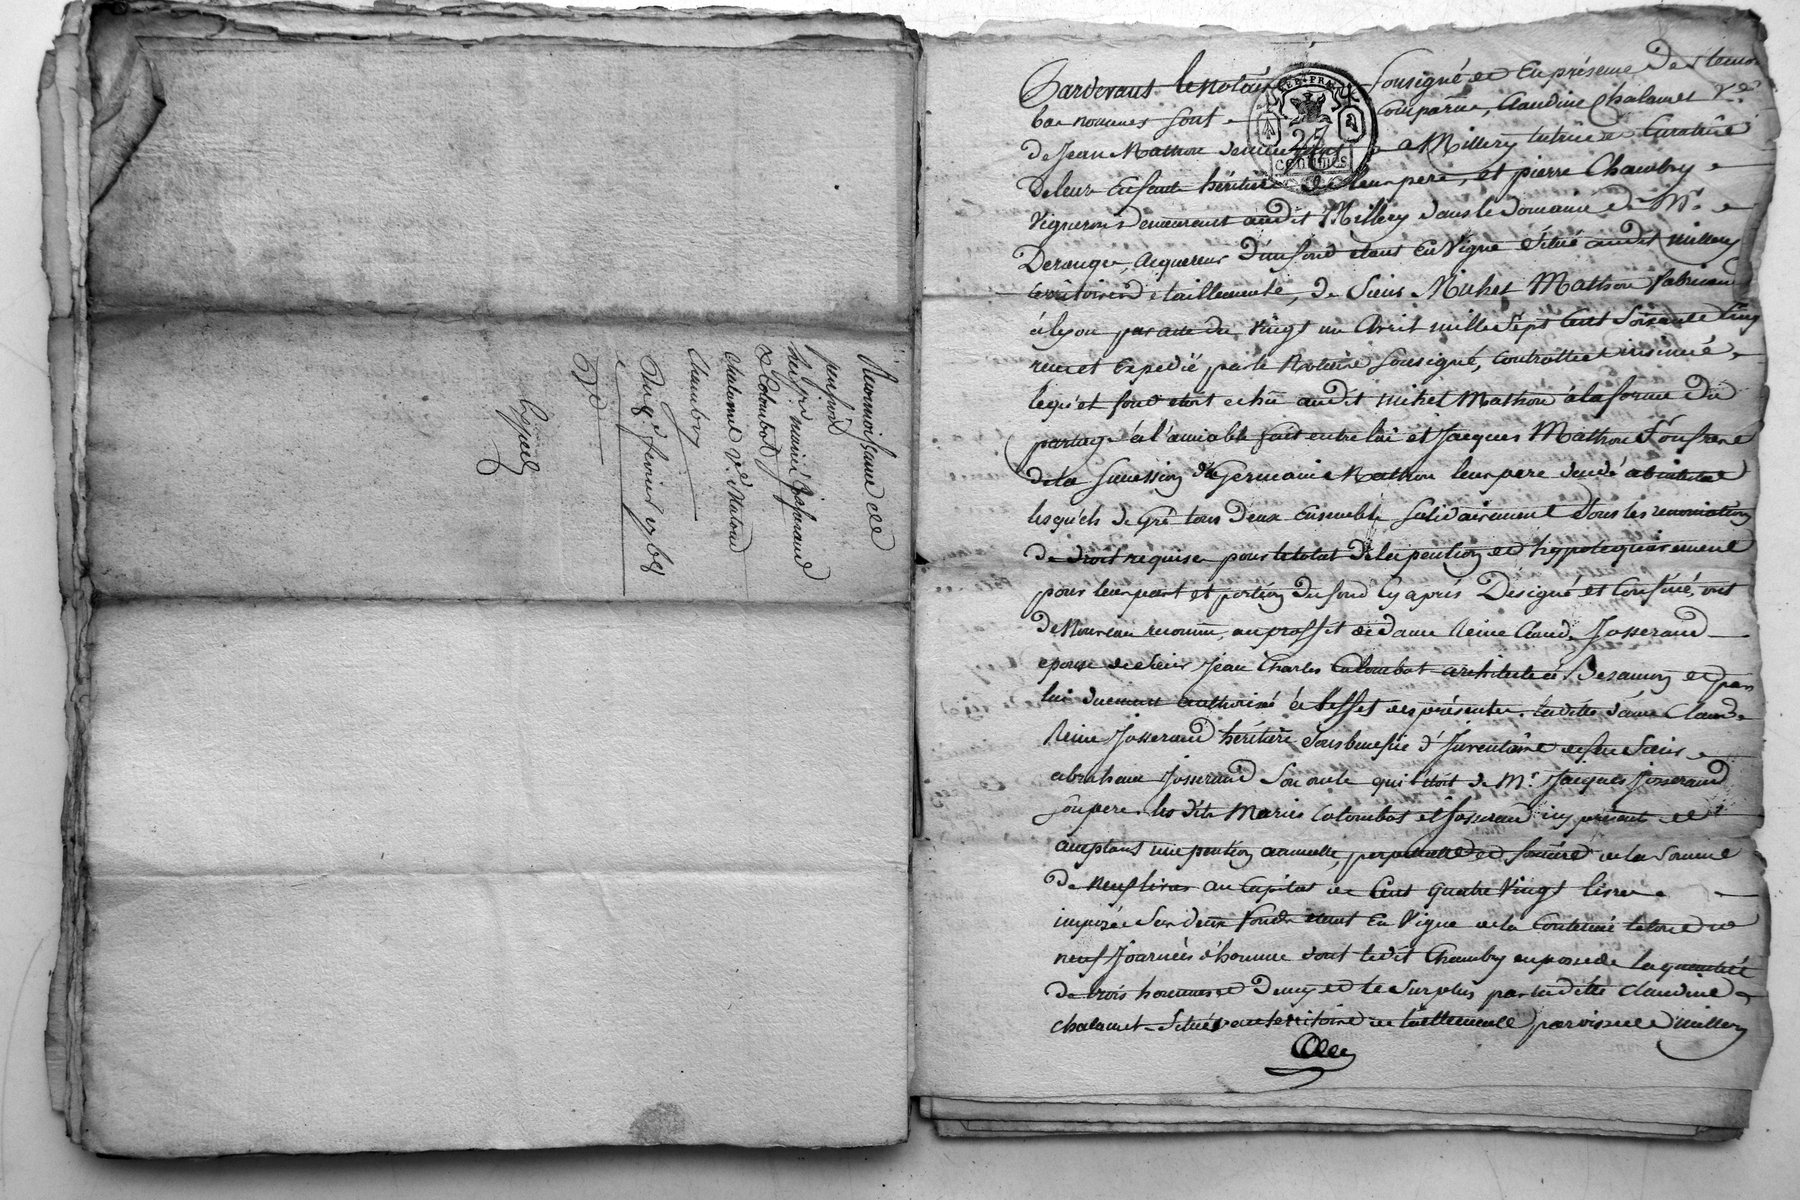 Reconnoissance de
pension
heüse mariés Josserand
& Colombot
chalamel v.e Mathon
Chambry
Du 8 fevrier 1768
Exped
Pardevant le Notaire Sousigné et En présence Des temoins
bas nommés sont comparus, Claudine Chalamel V.e
de Jean Mathon demeurant a Millery tutrice et Curatrice
De leur Enfant héritier de leur pere, et pierre Chambry
Vigneron demeurant audit Millery dans le domaine de Mr
Derangue, Acquereur D'un fond etant En Vigne Situé audit Millery
territoire de taillemente, de Sieur Michel Mathon fabriquant
à lyon par acte du Vingt un Avril mille Sept Cent Soixante Cinq
reçu et Expedié par le Notaire Sousigné, Controllé et insinué
lequel fond etoit echu audit Michel Mathon à la forme Du
partage à l'amiable fait entre lui et Jacques Mathon Son frere
de la Succession de Germain Mathon leur pere decedé abintestat
lesquels de Gré tous deux Ensemble Solidairement Sous les renonciations
de droit requises pour le total de la pention et hyppotequairement
pour leur part et portion du fond Cy après Désigné et Confiné, ont
de Nouveau reconnu, au proffit de dame Reine Claude Josserand
epouse de Sieur Jean Charles Colombot architecte à Besançon et par
lui duement authorisée à l'effet des présentes. laditte dame Claude
Reine Josserand héritière Sous benefice d'Inventaire de feu Sieur
abraham Josserand Son oncle qui l'étoit de Mr Jacques Josserand
Son pere. les dits Mariés Colombot et Josserand icy présents et
acceptants une pention annuelle, perpetuelle et fonciere de la Somme
De neuf livres au Capital de Cent quatre Vingt livres
imposée Sur deux fonds etant En Vigne de la Contenue totale de
neuf Journées d'homme dont ledit Chambry en possede la quantité
De trois hommes et Demy et le Surplus par laditte Claudine
chalamel Situés au territoire de taillemente, parroisse de Millery